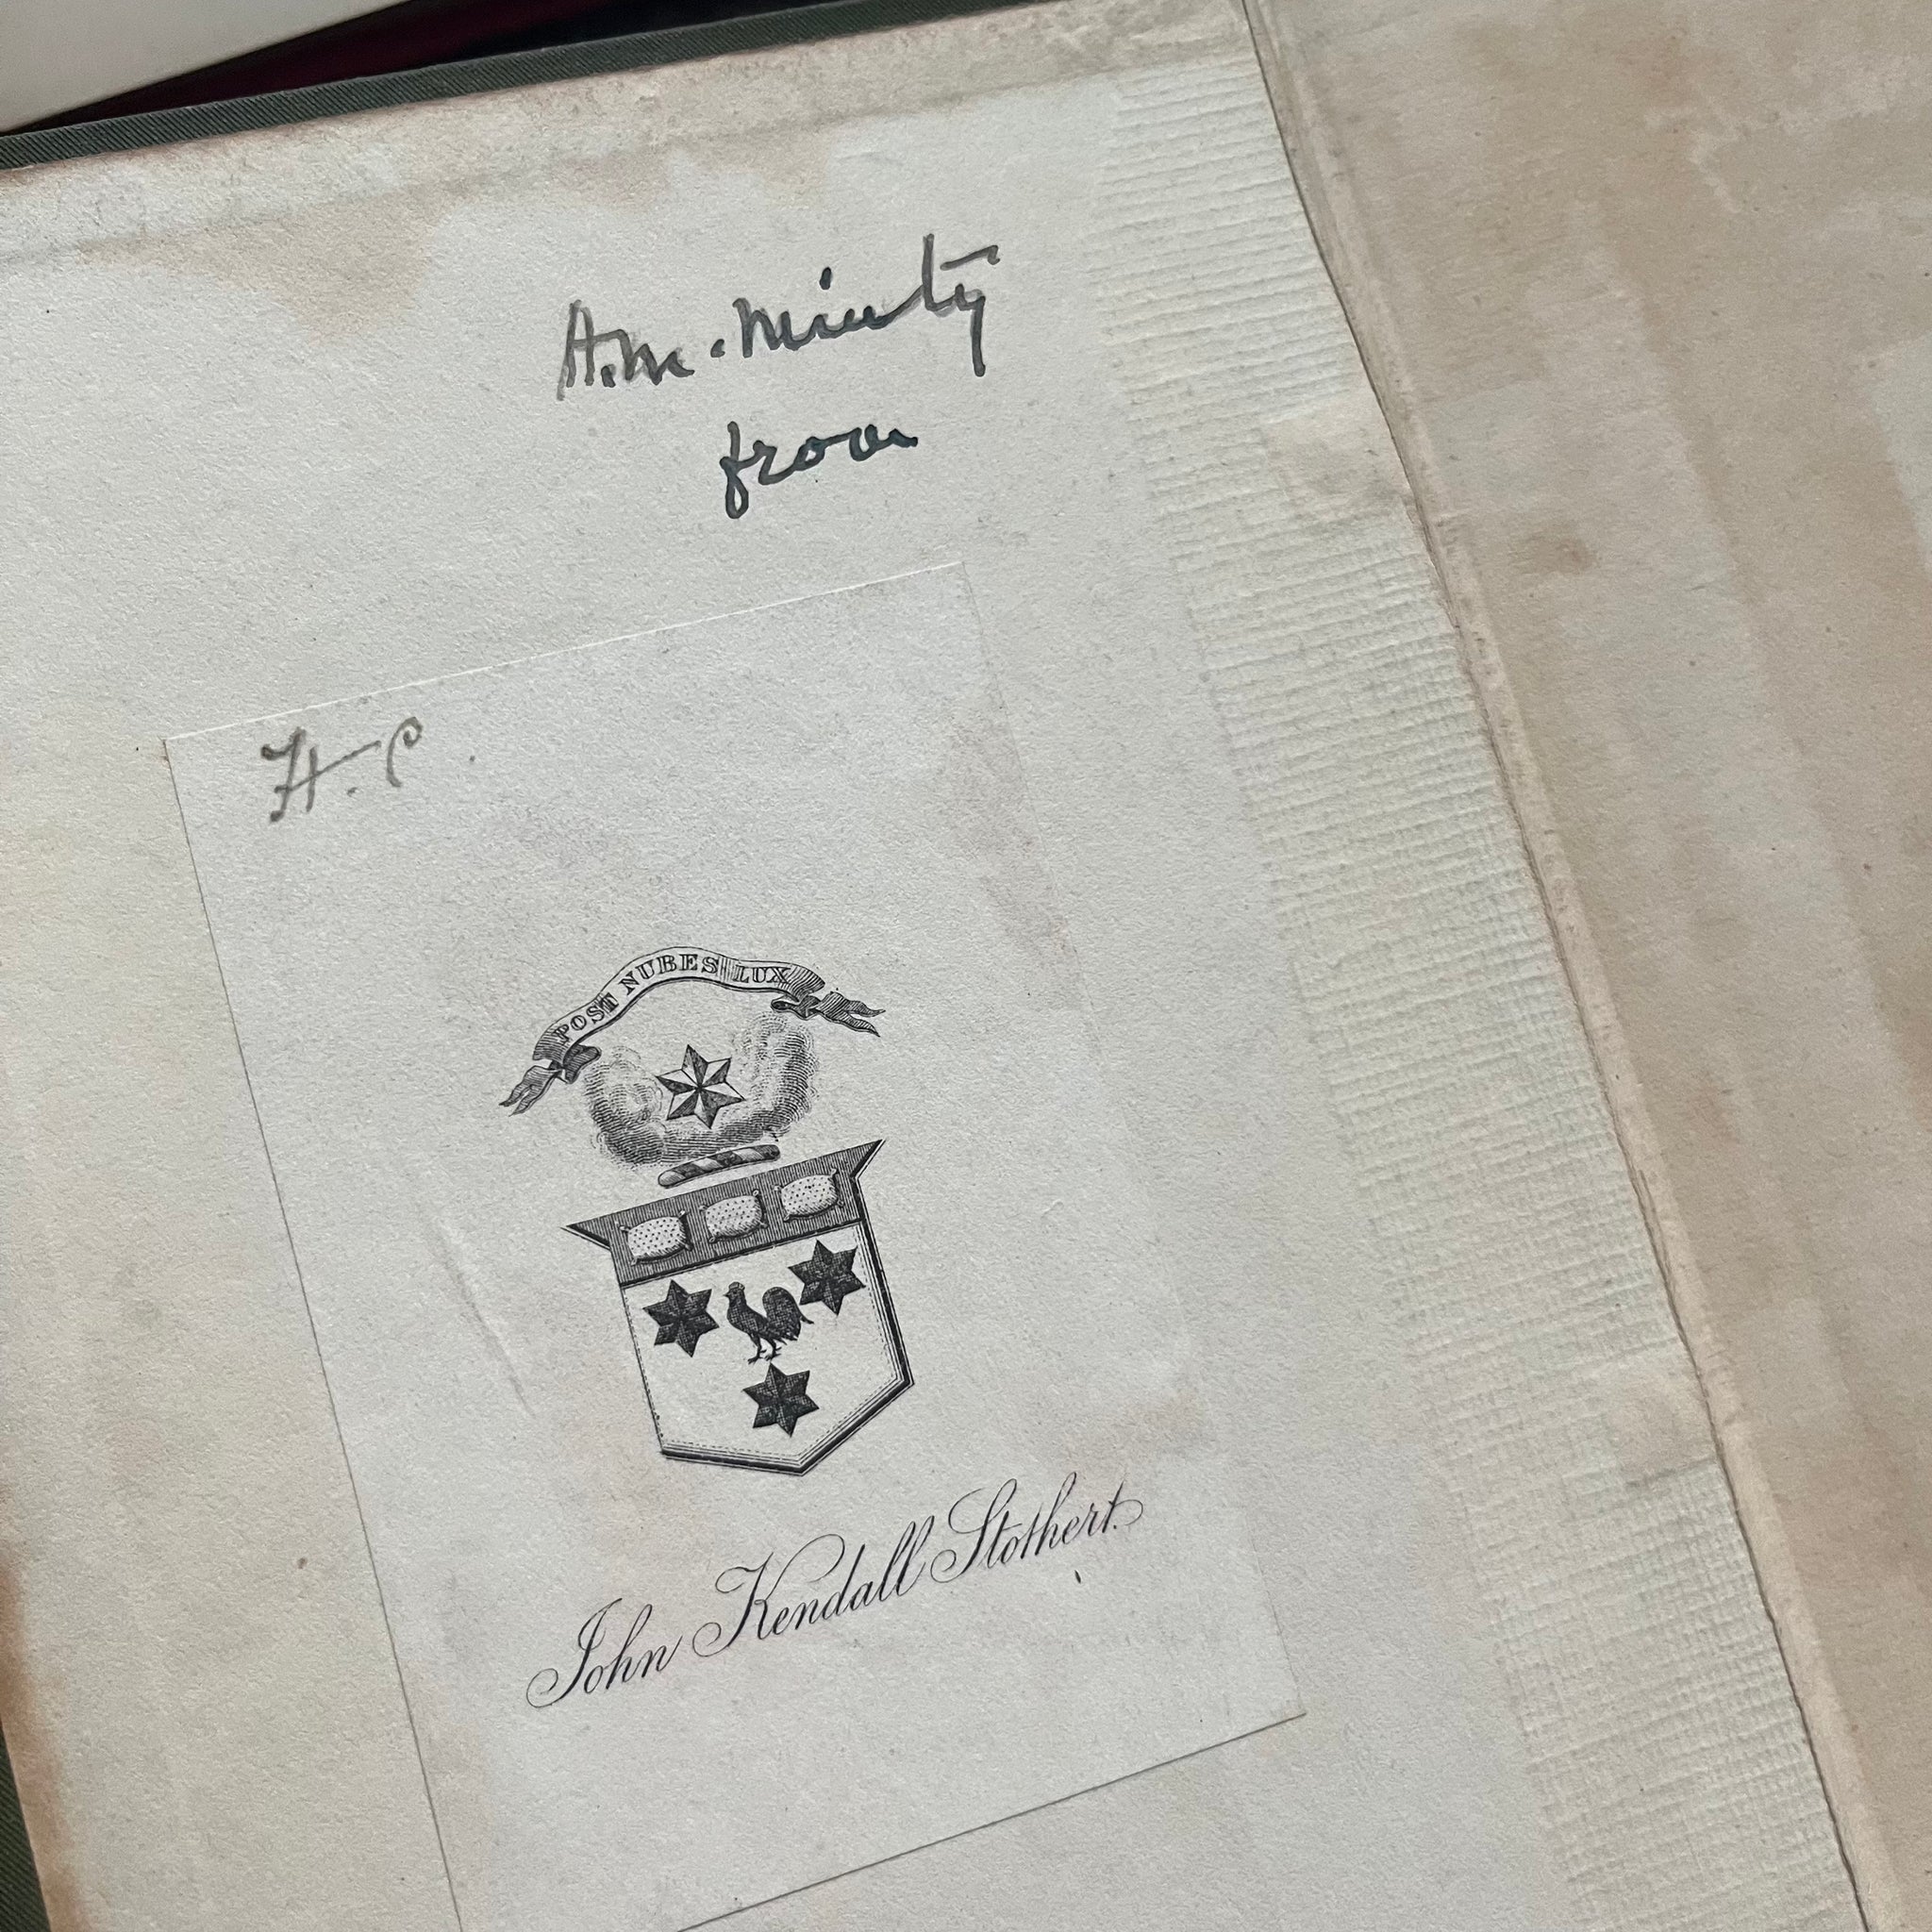 A.M. Minty
from
H. P.
POST NUBES LUX
John Kendall Stothert.